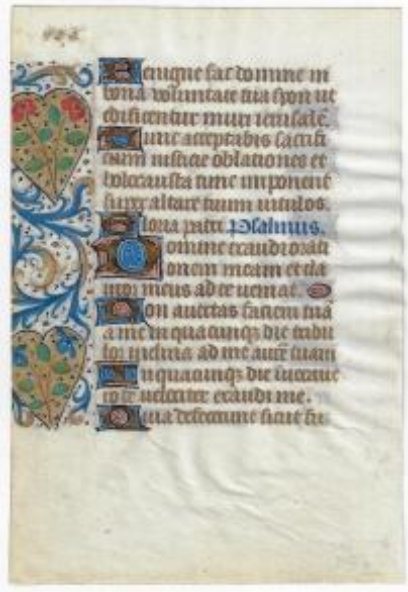 Benigne fac domine in
bona voluntate tua syon ut
edificentur muri ierusalē.
Tunc acceptabis sacrifi
cium iusticie oblationes et
holocausta tunc imponent
super altare tuum vitulos.
Gloria patri. Psalmus.
Domine exaudi orati
onem meam et cla
mor meus ad te veniat.
Non avertas faciem tuā
a me in quacunq; die tribu
lor inclina ad me aurē tuam
In quacunq; die invocave
ro te velociter exaudi me.
Quia defecerunt sicut fu